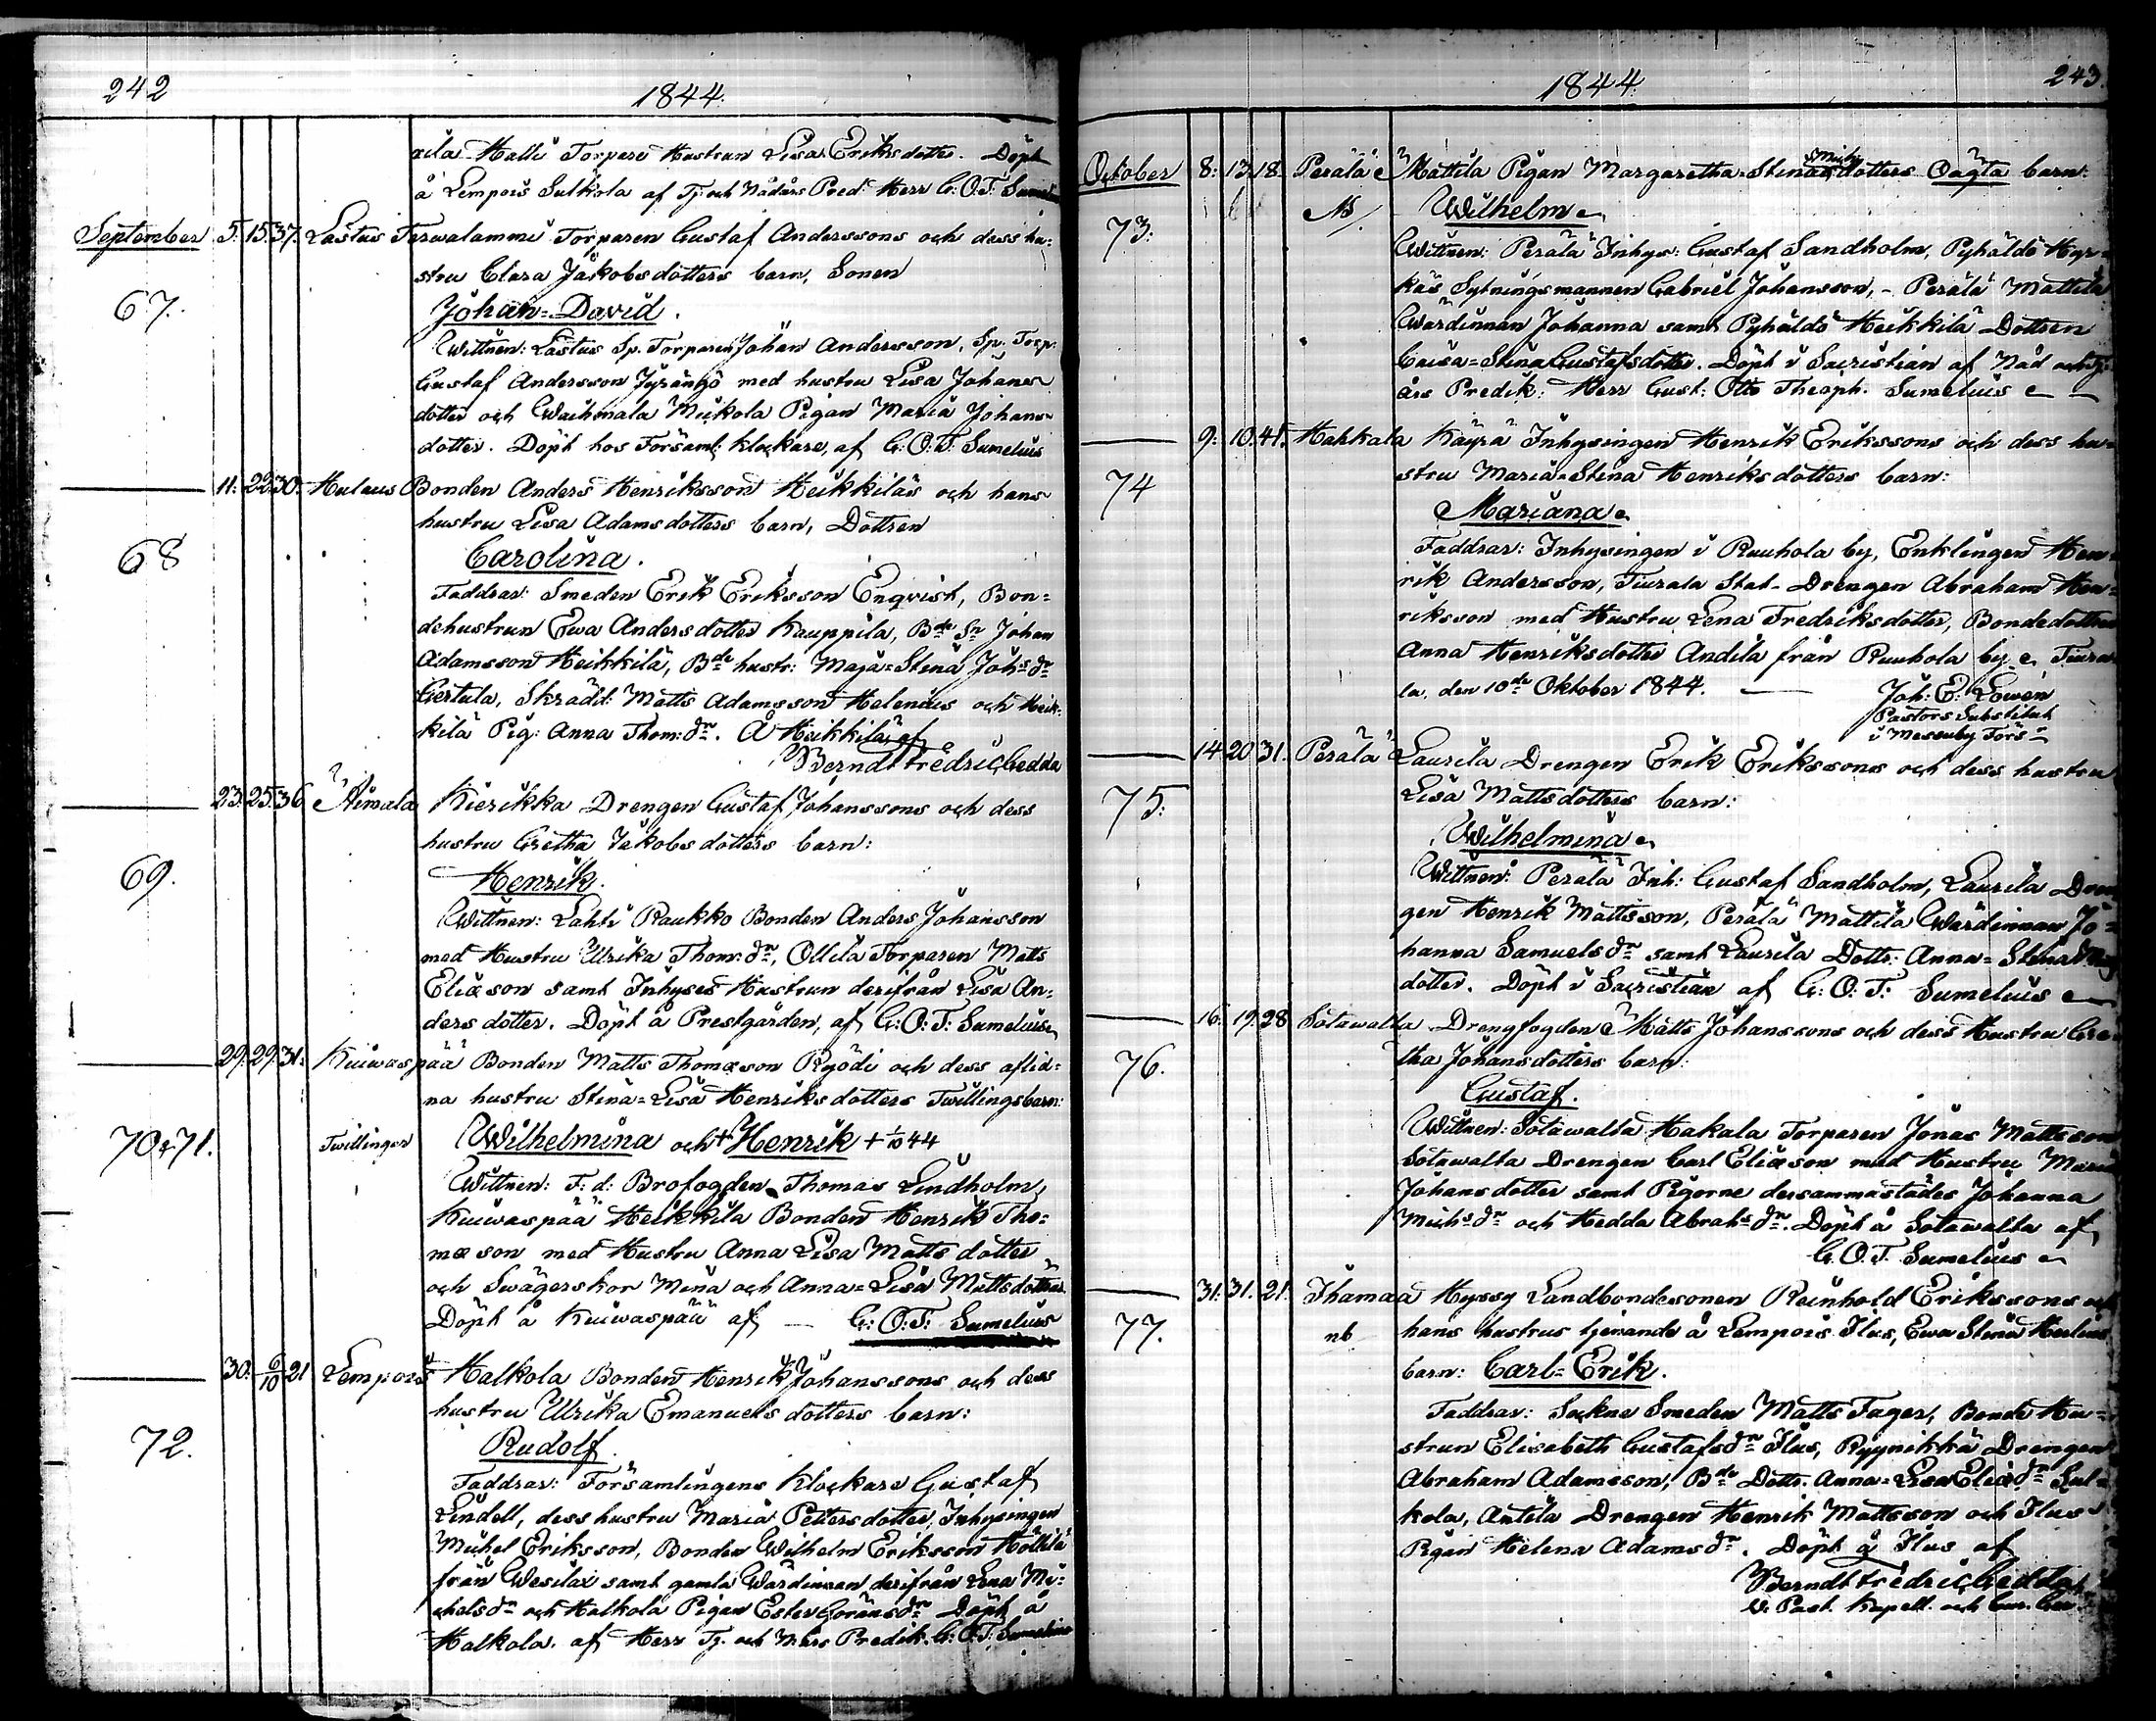 242
1844.
xila Matts Torpare Hustrun Lisa Eriksdotter. Döpt
å Lempois Sulkola af Tj. och Nådårs Pred: Herr G: O: T: Sumel
September 5. 15. 37. Lastus Terwalammi Torparen Gustaf Anderssons och dess hu-
stru Clara Jakobsdotters barn, Sonen
67. Johan-David.
Wittnen: Lastus Sp. Torparen Johan Andersson, Sp. Torp.
Gustaf Andersson Jyrängö med hustru Lisa Johans
dotter och Wachmala Mickola Pigan Maria Johans
dotter. Döpt hos Församl: klockare, af G: O: T: Sumelius
11. 22. 30. Hulaus Bonden Anders Henriksson Heikkiläs och hans
hustru Lisa Adamsdotters barn, Dottren
68 Carolina.
Faddrar: Smeden Erik Eriksson Enqvist, Bon=
dehustrun Ewa Andersdotter Kauppila, Bde Sn Johan
Adamsson Heikkilä, Bde hustr: Maja=Stina Johs dr
Gertula, Skrädd: Matts Adamsson Helenius och Heik-
kilä Pig: Anna Thom: dr. Å Heikkilä af
Berndt Fredric Gedda
23. 25. 36 Aimala Kierikka Drengen Gustaf Johanssons och dess
hustru Gretha Jakobsdotters barn:
69. Henrik.
Wittnen: Lahti Raukko Bonden Anders Johansson
med Hustru Ulrika Thom: dr, Ollila Torparen Matts
Eliæson samt Inhyses Hustrun derifrån Lisa An-
dersdotter. Döpt å Prestgården, af G: O: T: Sumelius
29. 29. 31. Kuiwaspää Bonden Matts Thomæson Ryödi och dess aflid=
na hustru Stina=Lisa Henriksdotters Twillingsbarn:
70&71. Twillingar Wilhelmina och + Henrik + 1/10 44
Wittnen: F: d: Brofogden Thomas Lindholm,
Kuiwaspää Heikkilä Bonden Henrik Tho=
mæson med Hustru Anna Lisa Mattsdotter
och Swägerskor Mina och Anna=Lisa Mattsdöttrar.
Döpt å Kuiwaspää af — G: O: T: Sumelius
30. 6/10 21 Lempois Halkola Bonden Henrik Johanssons och dess
hustru Ulrika Emanuelsdotters barn:
72. Rudolf.
Faddrar: Församlingens Klockare Gustaf
Lindell, dess hustru Maria Pettersdotter, Inhysingen
Mickel Eriksson, Bonden Wilhelm Eriksson Mottilä
från Wesilax samt gamla Wärdinnan derifrån Lena Mi=
chelsdr och Halkola Pigan Ester Göransdr. Döpt å
Halkola. af Herr Tj. och N:års Predik. G: O: T: Sumelius
1844
243.
October 8. 13. 18. Perälä Mattila Pigan Margaretha=Stina Michsdotters Oägta barn:
73. Nb/. Wilhelm
Wittnen: Perälä Inhys: Gustaf Sandholm, Pyhäldö Hyr=
käs Sytningsmannen Gabriel Johansson, - Perälä Mattila
Wärdinnan Johanna samt Pyhäldö Heikkilä Dottren
Caisa=Stina Gustafsdotter. Döpt i Sacristian af Nåd och Tj
års Predik: Herr Gust: Otto Theoph. Sumelius
9. 10. 41. Hahkala Käyrä Inhysingen Henrik Erikssons och dess hu-
stru Maria=Stina Henriksdotters barn:
74 Mariana
Faddrar: Inhysingen i Ruuhola by, Enklingen Hen
rik Andersson, Tiurala Stat-Drengen Abraham Hen=
riksson med Hustru Lena Fredriksdotter, Bondedottren
Anna Henriksdotter Andila från Ruuhola by Tiura
la, den 10de Oktober 1844. — Joh: E: Lowén
Pastors Substitut
i Messuby Förs
14. 20. 31. Perälä Laurila Drengen Erik Erikssons och dess hustru
Lisa Mattsdotters barn:
75. Wilhelmina
Wittnen: Perälä Inh: Gustaf Sandholm, Laurila Dren
gen Henrik Mattsson, Perälä Mattila Wärdinnan Jo=
hanna Samuelsdr samt Laurila Dottr: Anna=Stina
dotter. Döpt i Sacristian af G: O: T: Sumelius
16. 19. 28 Sotawalta Drengfogden Matts Johanssons och dess Hustru Gre
tha Johansdotters barn:
76. Gustaf.
Wittnen: Sotawalta Hakala Torparen Jonas Mattsson
Sotawalta Drengen Carl Eliæson med Hustru Maria
Johansdotter samt Pigorne dersammastädes Johanna
Michs dr och Hedda Abrahs dr. Döpt å Sotawalta af
G. O. T. Sumelius
31. 31. 21. Thamaa Hyssy Landbondesonen Reinhold Erikssons och
77. nb hans hustrus tjenande å Lempois Ilus, Ewa Stina
barn: Carl=Erik.
Faddrar: Sockne Smeden Matts Fager, Bonde Hu=
strun Elisabeth Gustafsdr Ilus, Ryynikkä Drengen
Abraham Adamsson, Bde Dottr. Anna=Lisa Eliædr Sul=
kola, Antila Drengen Henrik Mattsson och Ilus
Pigan Helena Adamsdr. Döpt å Ilus af
Berndt Fredric Gedda
V. Past. Kapell. och